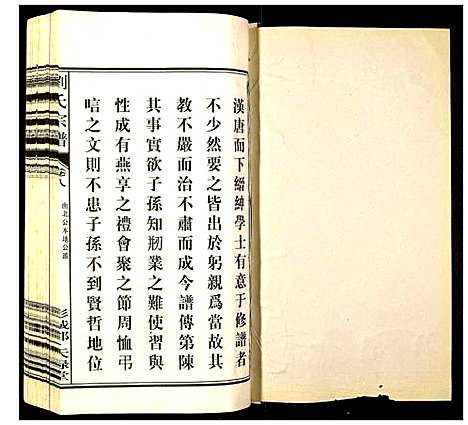 漢唐而下縉紳學士有意于修譜者
不少然要之皆出於躬親為當故其
教不嚴而治不肅而成今譜傳第陳
其事實欲子孫知刱業之難使習與
性成有燕享之禮會聚之節周恤弔
唁之文則不患子孫不到賢哲地位
劉氏宗譜
卷八
彭城郡 天祿堂